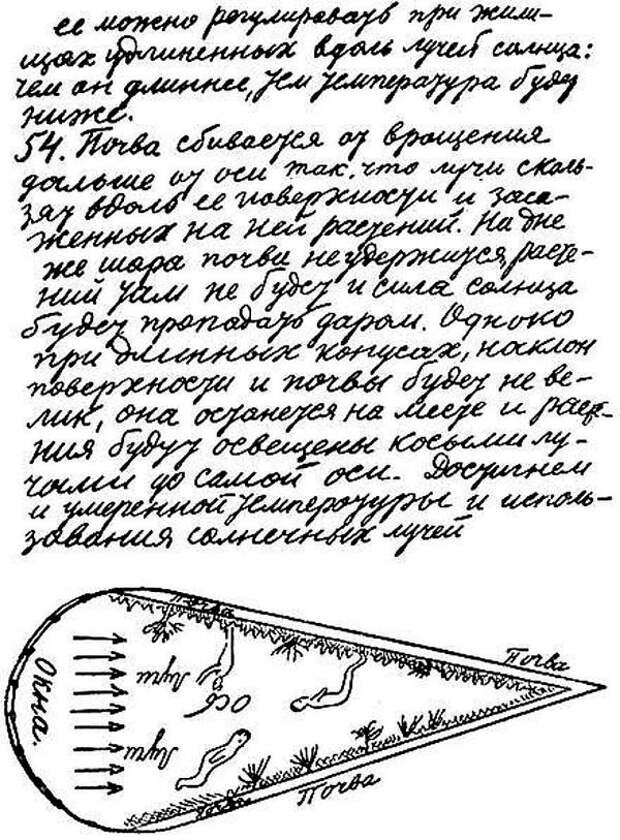 ее можно регулировать при жили-
щах удлиненных вдоль лучей солнца:
чем он длиннее, тем температура будет
ниже.
54. Почва сбивается от вращения
дальше от оси так, что лучи сколь-
зят вдоль ее поверхности и заса-
женных на ней растений. На дне
же шара почва не удержится, расте-
ний там не будет и сила солнца
будет пропадать даром. Однако
при длинных конусах, наклон
поверхности и почвы будет не ве-
лик, она останется на месте и расте-
ния будут освещены косыми лу-
чами до самой оси. Достигнем
и умеренной температуры и исполь-
зования солнечных лучей
Почва
Почва
Окна.
Лучи
Ось
Лучи
Почва
Почва